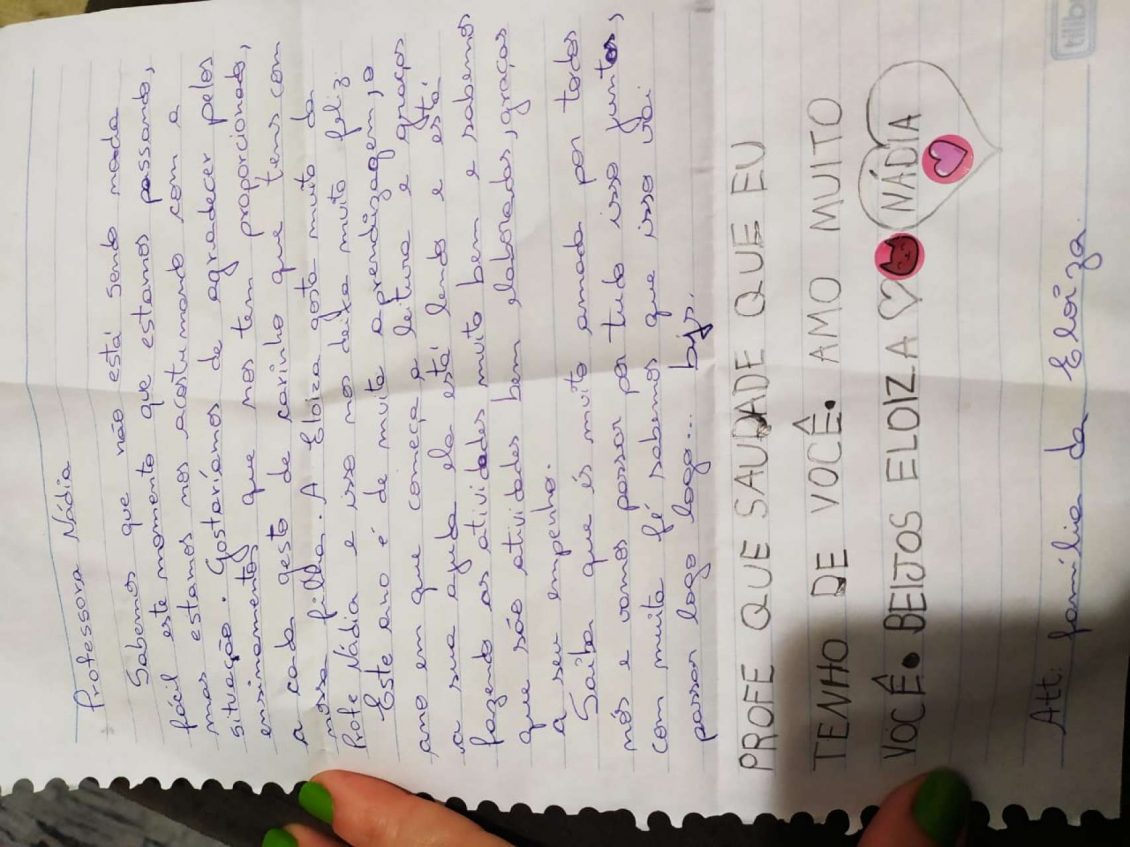 Professora Nádia
Sabemos que não está sendo nada
fácil este momento que estamos passando,
mas estamos nos acostumando com a
situação. Gostaríamos de agradecer pelos
ensinamentos que nos tem proporcionado,
a cada gesto de carinho que tens com
nossa filha. A Eloiza gosta muito da
Profe Nádia e isso nos deixa muito feliz.
Este ano é de muita aprendizagem, o
ano em que começa a leitura e graças
a sua ajuda ela está lendo e está
fazendo as atividades muito bem e sabemos
que são atividades bem elaboradas, graças
a seu empenho.
Saiba que és muito amada por todos
nós e vamos passar por tudo isso juntos,
com muita fé sabemos que isso vai
passar logo logo... bjs.
PROFE QUE SAUDADE QUE EU
TENHO DE VOCÊ. AMO MUITO
VOCÊ. BEIJOS ELOIZA NÁDIA
Att: família da Eloiza.
tilib